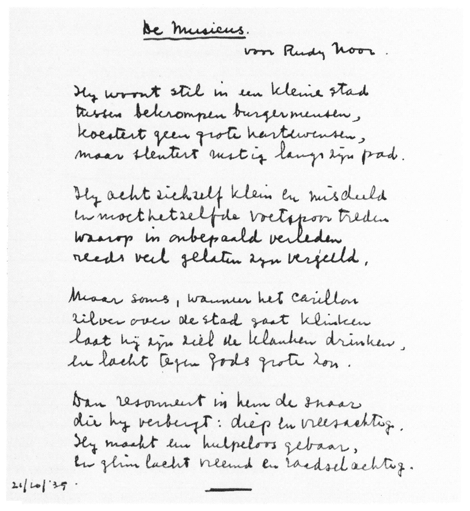 De Musicus.
voor Rudy Noor.
Hy woont stil in een kleine stad
tussen bekrompen burgermensen,
koestert geen grote hartewensen,
maar slentert rustig langs zyn pad.
Hy acht zichzelf klein en misdeeld
en moet hetzelfde voetspoor treden
waarop in onbepaald verleden
reeds veel gelaten zyn vergeeld.
Maar soms, wanneer het carillon
zilver over de stad gaat klinken
laat hy zyn ziel de klanken drinken,
en lacht tegen Gods grote zon.
Dan resonneert in hem de snaar
die hy verbergt: diep en vreesachtig.
Hy maakt een hulpeloos gebaar,
en glimlacht vreemd en raadselachtig.
21/10/'39.